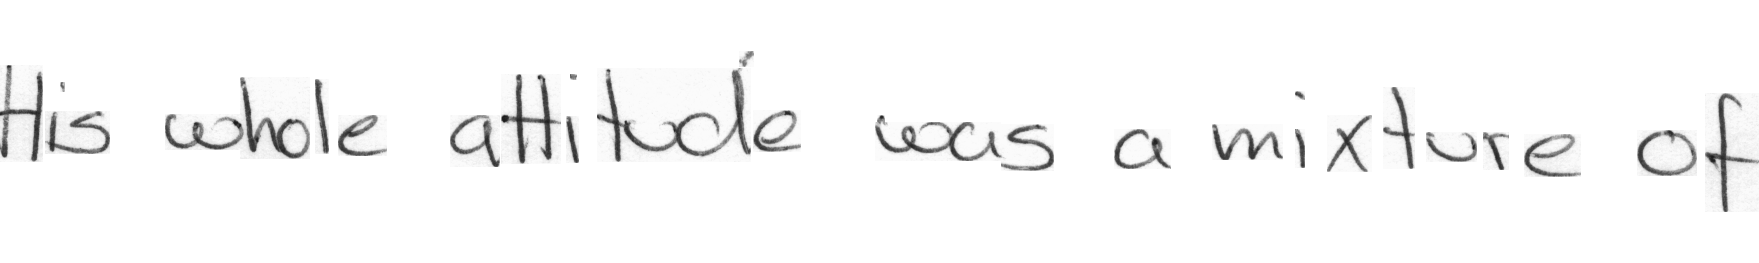 His whole attitude was a mixture of